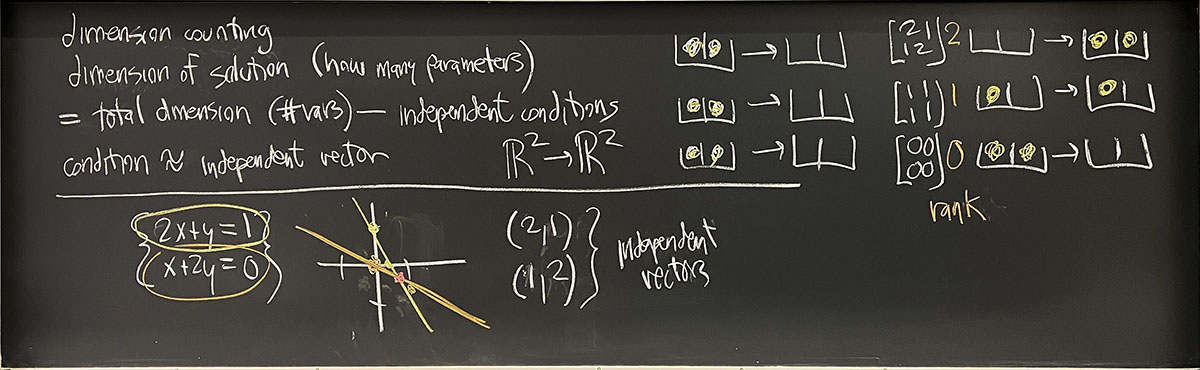 dimension counting
dimension of solution (how many parameters)
= total dimension (#vars) — independent conditions
condition ≈ independent vector
R² → R²
2x+y=1
x+2y=0
(2,1)
(1,2)
independent
vectors
→
→
→
[2 1
1 2] 2 →
[1 1
1 1] 1 →
[0 0
0 0] 0 →
rank